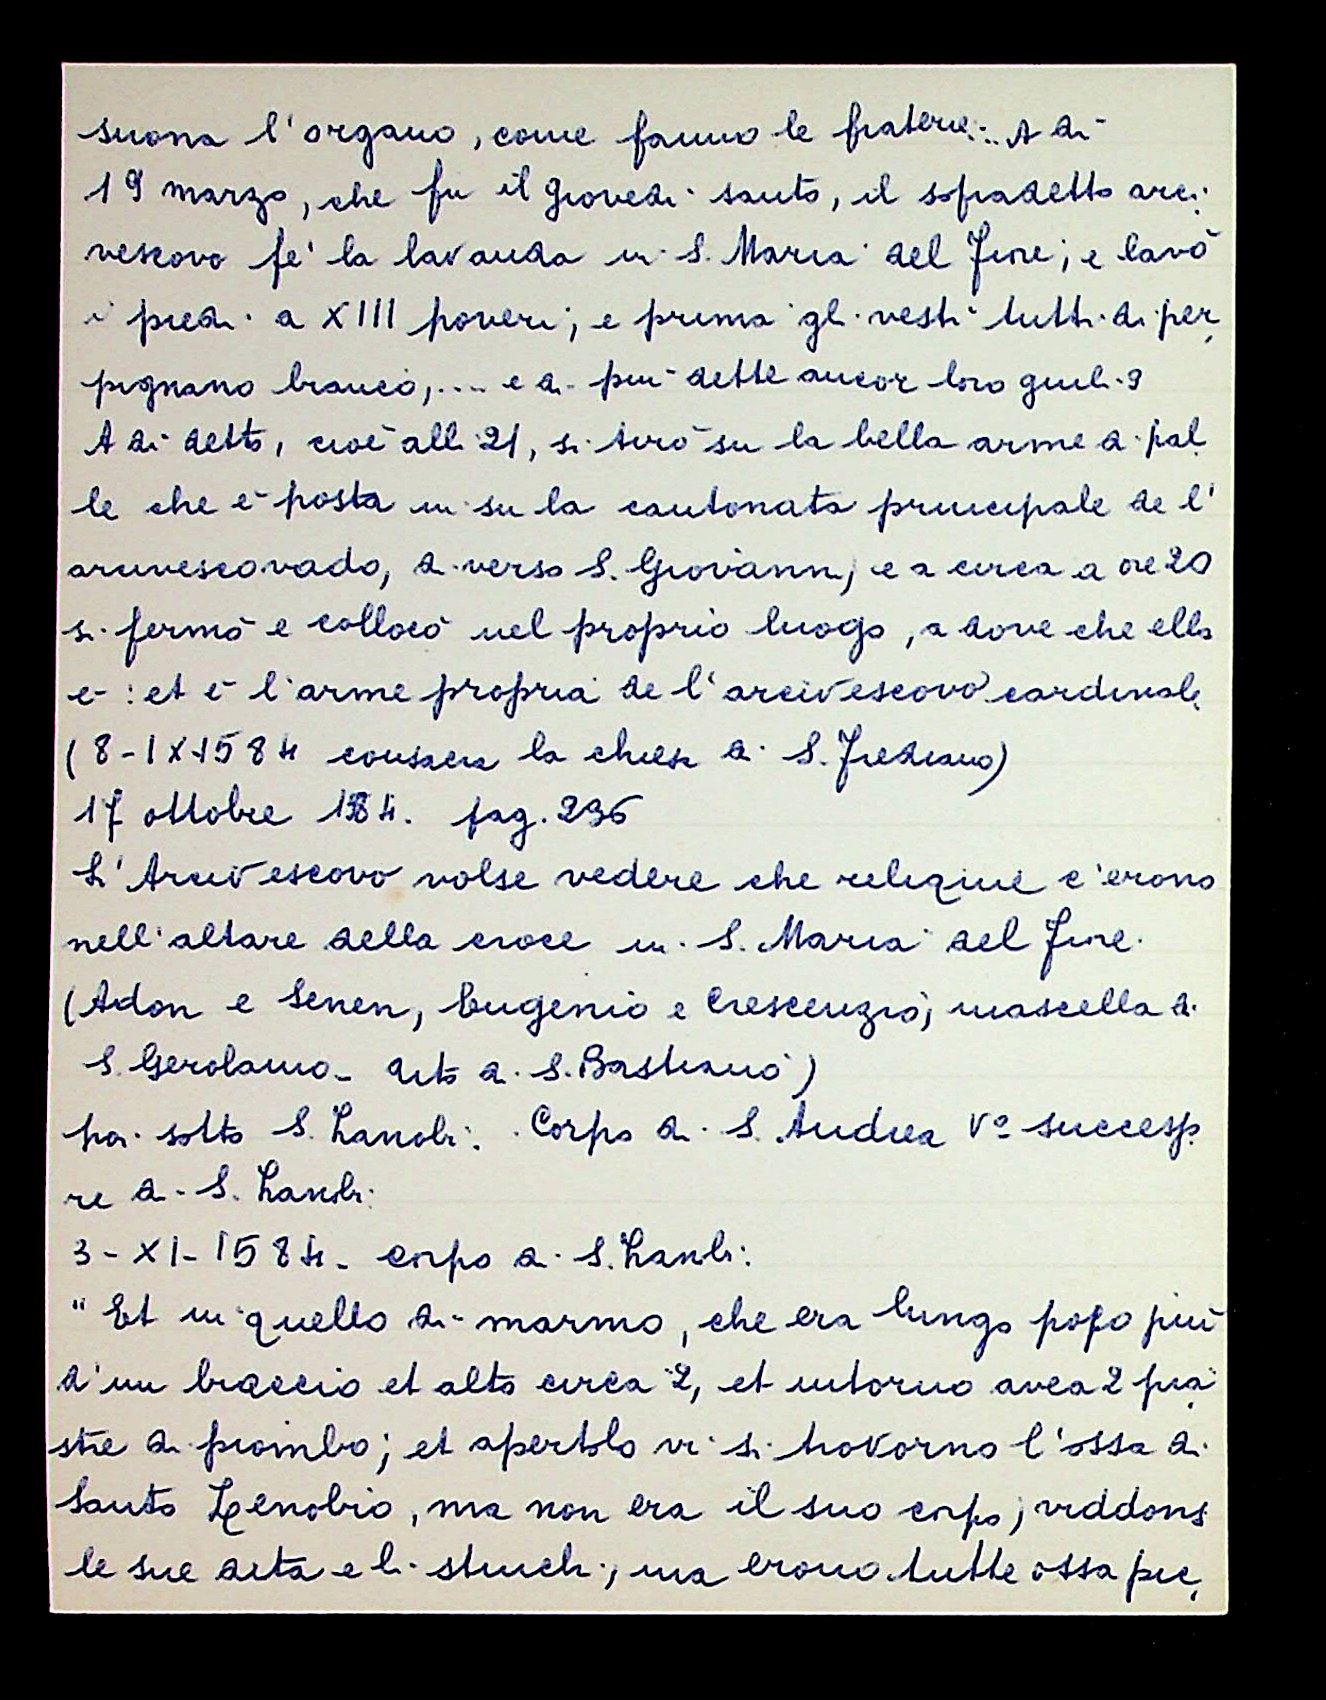 suona l'organo, come fanno le fraterie... A di
19 marzo, che fu il giovedi santo, il sopradetto arci-
vescovo fe' la lavanda in S. Maria del Fiore; e lavò
i piedi a XIII poveri; e prima gli vestì tutti di per-
pignano bianco, .... e di più dette ancor loro giuli 9
A di detto, cioè alli 21, si tirò su la bella arme di pal-
le che è posta in su la cantonata principale de l'
arcivescovado, di verso S. Giovanni; e a circa a ore 20
si fermò e collocò nel proprio luogo, a dove che ella
è: et è l'arme propria de l'arcivescovo cardinale
(8-IX-1584 consacra la chiesa di S. Frediano)
17 ottobre 1584. pag. 236
L'Arcivescovo volse vedere che reliquie c'erono
nell'altare della croce in S. Maria del Fiore.
(Adon e Senen, Eugenio e Crescenzio; mascella di
S. Gerolamo - dito di S. Bastiano)
poi sotto S. Zanobi: Corpo di S. Andrea Vº successo-
re di S. Zanobi:
3-XI-1584 - corpo di S. Zanobi:
"Et in quello di marmo, che era lungo poco più
d'un braccio et alto circa 2, et intorno avea 2 pia-
stre di piombo; et apertolo vi si trovorno l'ossa di
Santo Zenobio, ma non era il suo corpo; viddono
le sue dita e li stinchi; ma erono tutte ossa pic-